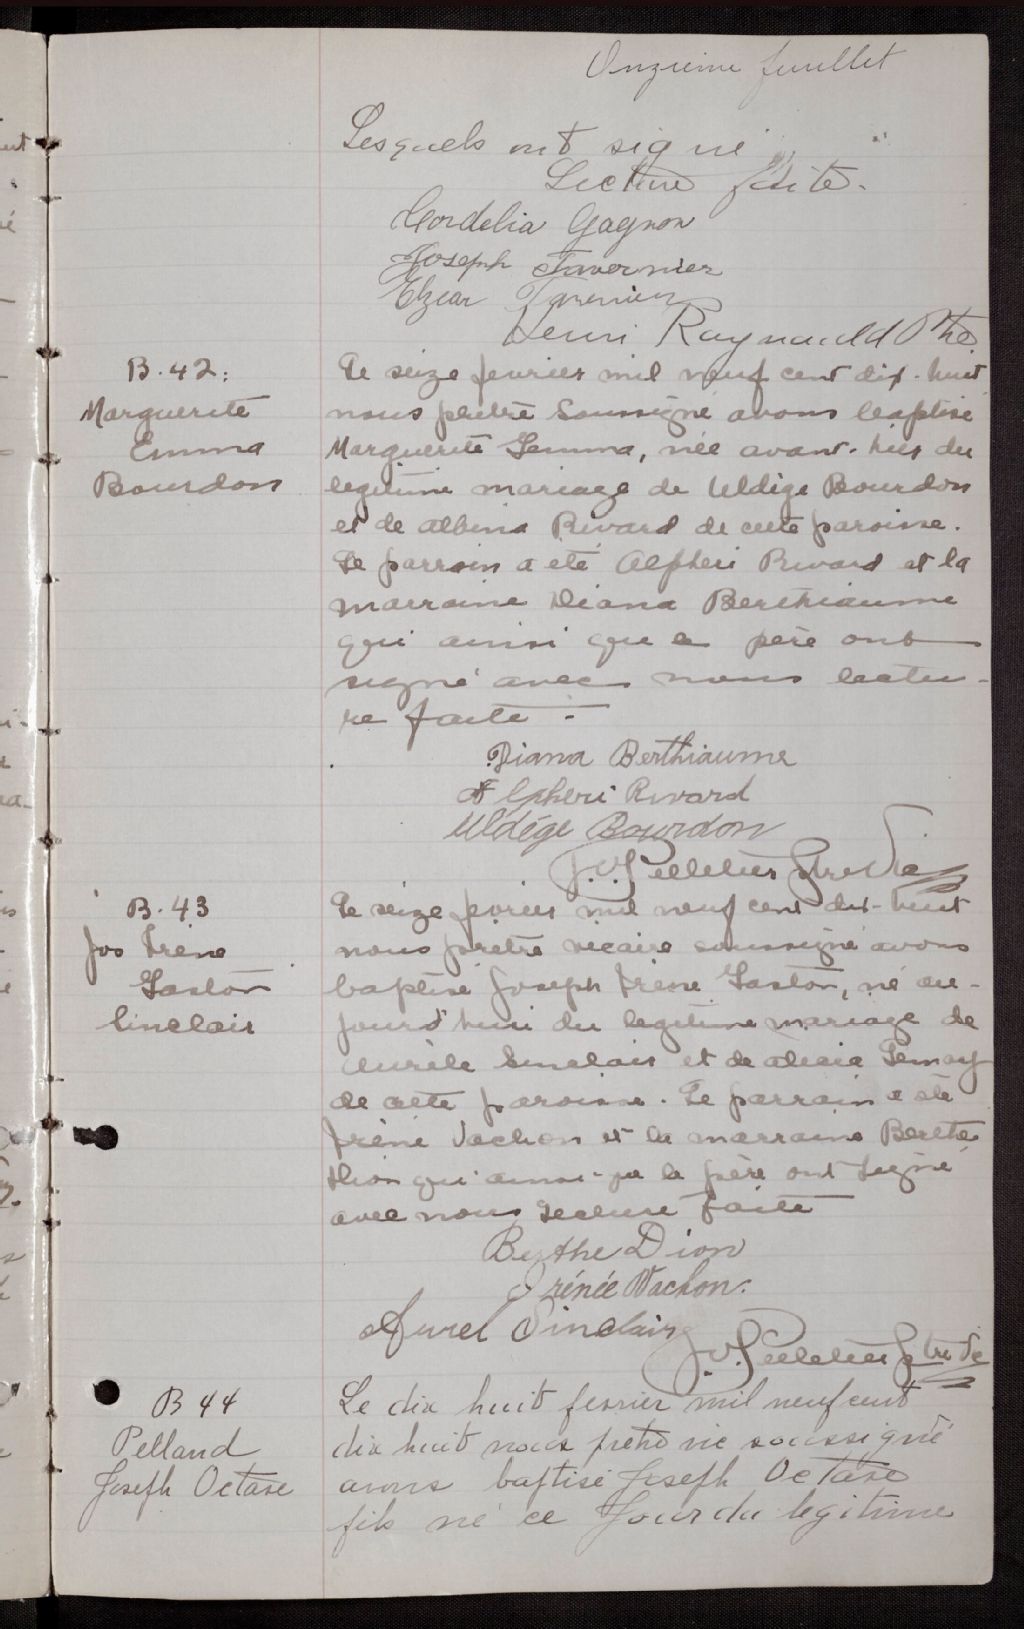 Onzième feuillet
Lesquels ont signé
Lecture faite.
Cordelia Gagnon
Joseph Tavernier
Elzear Tavernier
Henri Raynauld Ptre
B. 42:
Marguerite
Emma
Bourdon
Le seize fevrier mil neuf cent dix-huit
nous prêtre soussigné avons baptisé
Marguerite Gemma, née avant-hier du
legitime mariage de Uldège Bourdon
et de Albina Rivard de cette paroisse.
Le parrain a été Alpheri Rivard et la
marraine Diana Berthiaume
qui ainsi que le père ont
signé avec nous lectu-
re faite -
Diana Berthiaume
Alpheri Rivard
Uldége Bourdon
J. O. Pelletier Ptre Vic
B. 43
Jos Irène
Gaston
Sinclair
Le seize fevrier mil neuf cent dix-huit
nous prêtre vicaire soussigné avons
baptisé Joseph Irène Gaston, né au-
jourd'hui du legitime mariage de
Aurèle Sinclair et de Alexia Lemay
de cette paroisse. Le parrain a été
Irène Vachon et la marraine Berthe
Dion qui ainsi-que le père ont signé
avec nous Lecture faite
Berthe Dion
Irénée Vachon.
Aurel Sinclair
J. O. Pelletier Ptre Vic
B 44
Pelland
Joseph Octave
Le dix huit fevrier mil neuf cent
dix huit nous prêtre vic soussigné
avons baptisé Joseph Octave
fils né ce jour du legitime